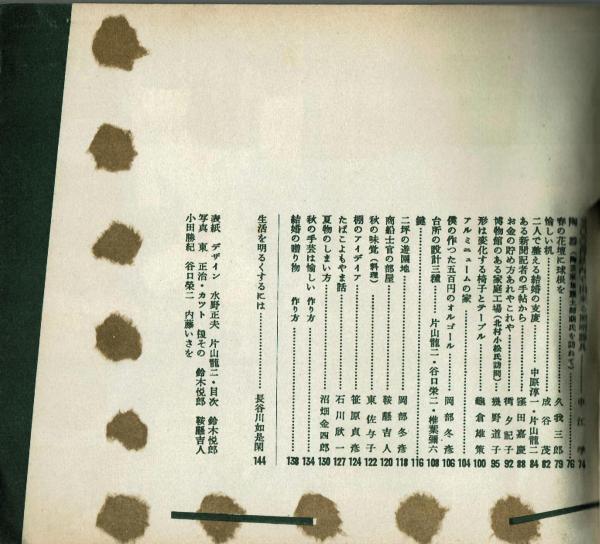 中江孚 74
陶器 76
春の花壇に球根を 久我三郎 79
愉しい机 成谷茂 82
二人で整える結婚の支度 中原淳一・片山龍二 84
ある新聞記者の手帖から 窪田嘉慶 88
お金の貯め方あれやこれや 街夕記子 92
博物館のある家庭工場(北村小松氏訪問) 磯野道子 95
形は変化する椅子とテーブル 龜倉雄策 100
アルミニュームの家 104
僕の作つた五百円のオルゴール 岡部冬彦 106
台所の設計三種 片山龍二・谷口栄二・椎葉彌六 108
鍵 116
二坪の遊園地 岡部冬彦 118
商船士官の部屋 鞍懸吉人 120
秋の味覚(料理) 東佐与子 122
棚のアイデイア 笹原貞彦 124
たばこよもやま話 石川欣一 127
夏物のしまい方 沼畑金四郎 130
秋の手芸は愉しい 作り方 134
結婚の贈り物 作り方 138
生活を明るくするには 長谷川如是閑 144
表紙 デザイン 水野正夫 片山龍二・目次 鈴木悦郎
写真 東 正治・カツト 俊その 鈴木悦郎 鞍懸吉人
小田勝紀 谷口栄二 内藤いさを